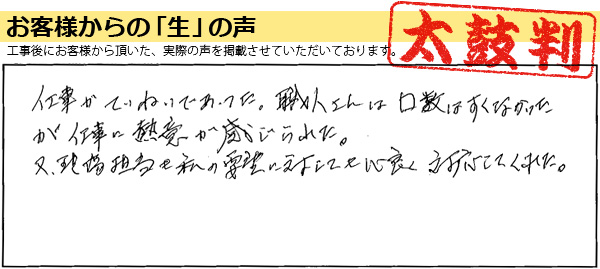 お客様からの「生」の声
工事後にお客様から頂いた、実際の声を掲載させていただいております。
太鼓判
仕事がていねいであった。職人さんは口数はすくなかった
が仕事に熱意が感じられた。
又、現場担当も私の要望に対しても心良く対応してくれた。